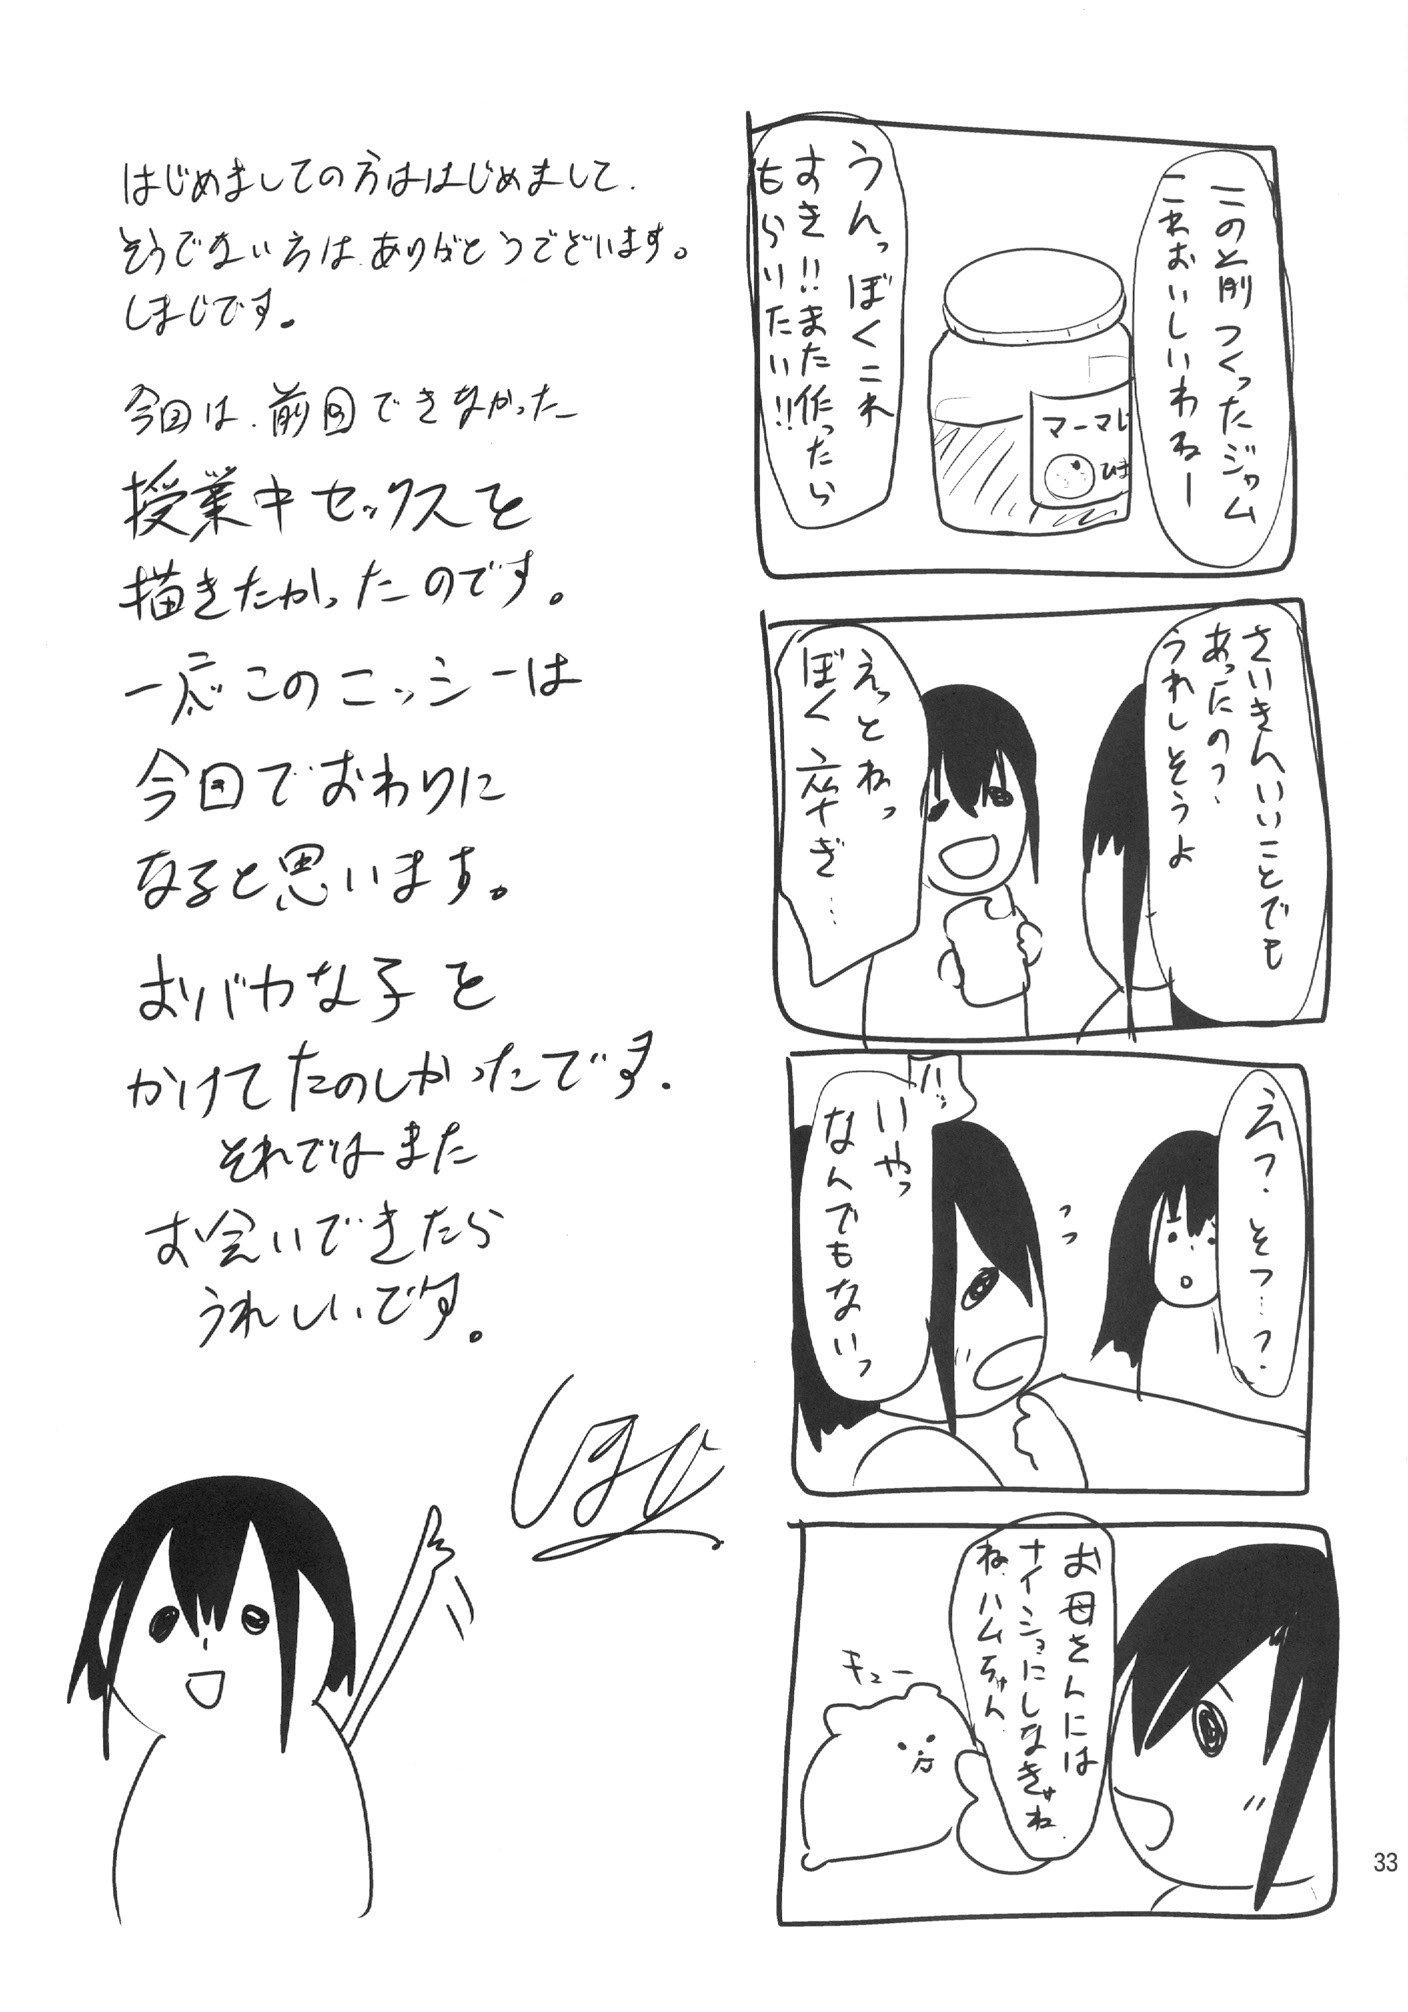 この前つくったジャム
これおいしいわねー
マーマレ
うんっぼくこれ
すき!!また作ったら
もらいたい!!
さいきんいいことでも
あったの?
うれしそうよ
えっとねっ
ぼく 卒ぎ…
えっ?そっ…?
ハッ
いやっ
なんでもないっ
お母さんには
ナイショにしなきゃね
ね、ハムちゃん
キュー
はじめましての方ははじめまして、
そうでない方は、ありがとうございます。
しまじです。
今回は、前回できなかった
授業中セックスを
描きたかったのです。
一応このニッシーは
今回でおわりに
なると思います。
おバカな子を
かけてたのしかったです。
それではまた
お会いできたら
うれしいです。
しまじ
33